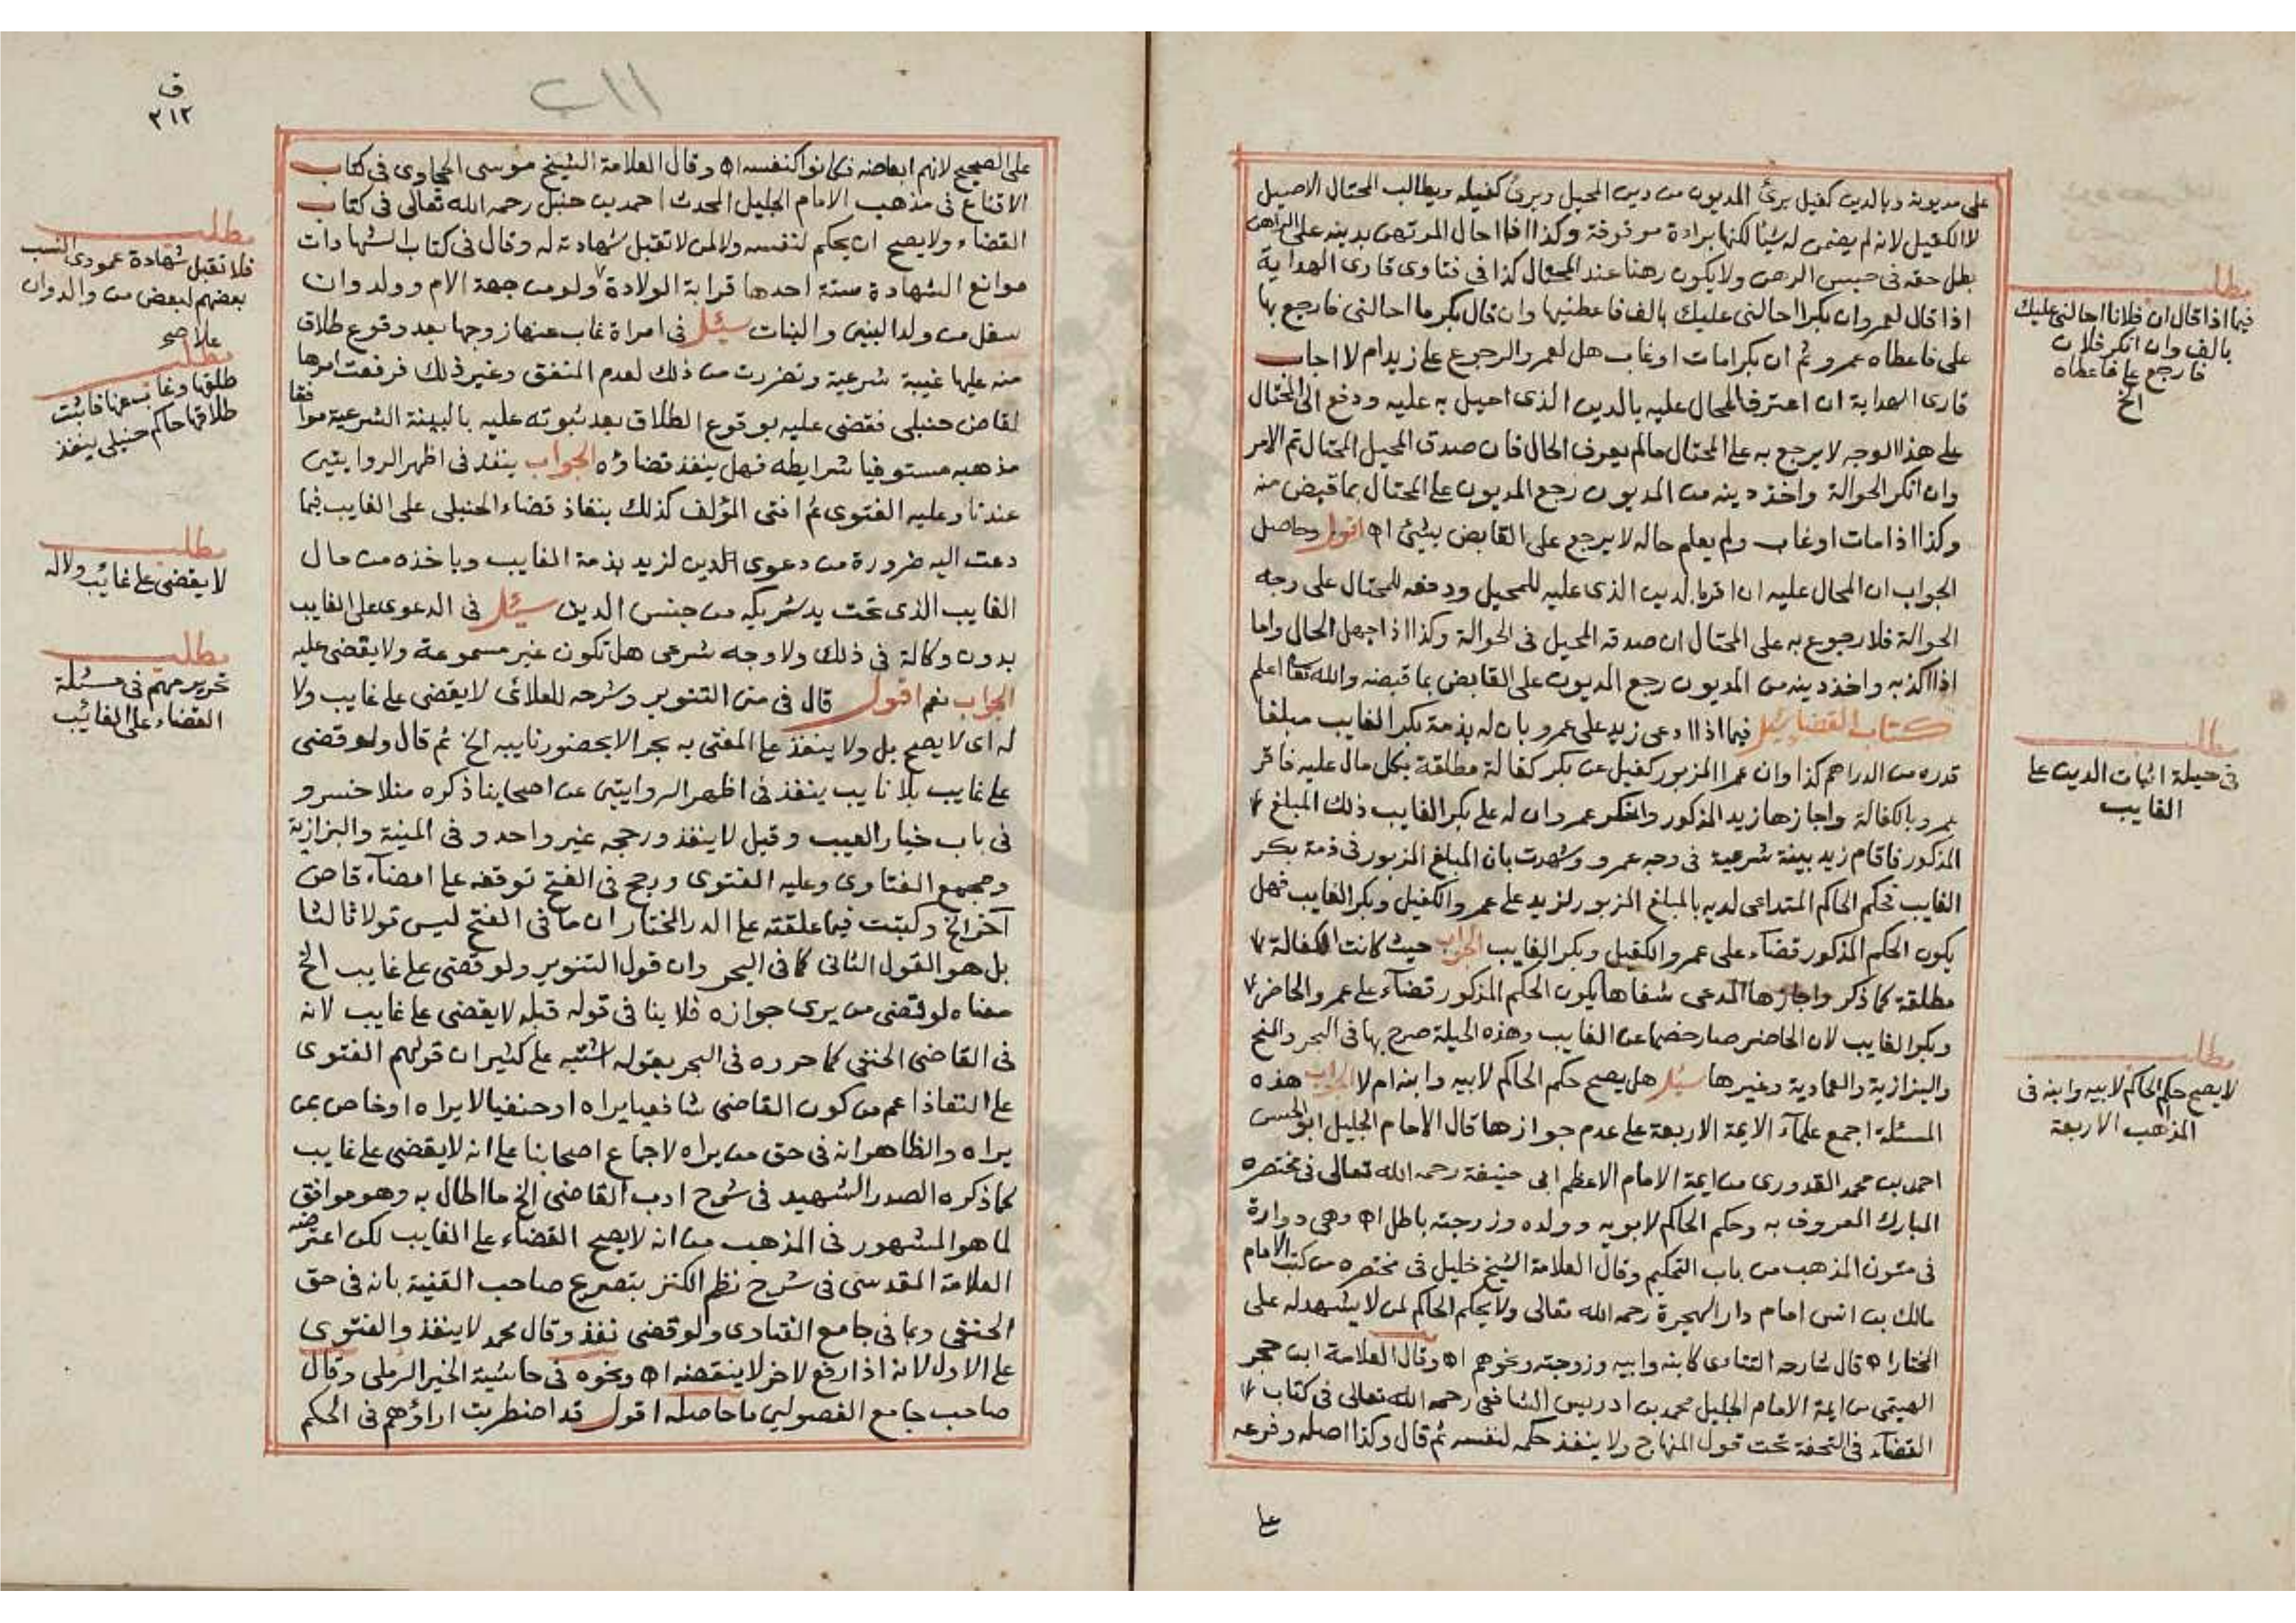 على مديونه وبالدين كفيل برئ المديون من دين المحيل وبرئ كفيله ويطالب المحتال الاصيل
لا الكفيل لانه لم يضمن له شيئا لكنها براءة موقوفة وكذا اذا احال المرتهن بدينه على الراهن
بطل حقه فى حبس الرهن ولا يكون رهنا عند المحتال كذا فى فتاوى قارى الهداية
اذا قال لعمرو ان بكرا احالنى عليك بالف فاعطنيها وان قال بكر ما احالتى فارجع بها
على فاعطاه عمرو ثم ان بكرا مات او غاب هل لعمرو الرجوع على زيد ام لا اجاب
قارى الهداية ان اعترف المحال عليه بالدين الذى احيل به عليه ودفع الى المحتال
على هذا الوجه لا يرجع به على المحتال مالم يعرف الحال فان صدق المحيل المحتال تم الامر
وان انكر الحوالة واخذ دينه من المديون رجع المديون على المحتال بما قبض منه
وكذا اذا مات او غاب ولم يعلم حاله لا يرجع على القابض بشئ اه اقول وحاصل
الجواب ان المحال عليه ان اقر بالدين الذى عليه للمحيل ودفعه للمحتال على وجه
الحوالة فلا رجوع به على المحتال ان صدقه المحيل فى الحوالة وكذا اذا جهل الحال واما
اذا اكذبه واخذ دينه من المديون رجع المديون على القابض بما قبضه والله تعا اعلم
كتاب القضا سئل فيما اذا ادعى زيد على عمرو بان له بذمة بكر الغايب مبلغا
قدره من الدراهم كذا وان عمرا المزبور كفيل عن بكر كفالة مطلقة بكل مال عليه فاقر
عمرو بالكفالة واجازها زيد المذكور وانكر عمرو ان له على بكر الغايب ذلك المبلغ
المذكور فاقام زيد بينة شرعية فى وجه عمرو وشهدت بان المبلغ المزبور فى ذمة بكر
الغايب فحكم الحاكم المتداعى لديه بالمبلغ المزبور لزيد على عمرو الكفيل وبكر الغايب فهل
يكون الحكم المذكور قضاء على عمرو الكفيل وبكر الغايب الجواب حيث كانت الكفالة
مطلقة كما ذكر واجازها المدعى شفاها يكون الحكم المذكور قضاء على عمرو الحاضر
وبكر الغايب لان الحاضر صار خصما عن الغايب وهذه الحيلة صرح بها فى البحر والمنح
والبزازية والعمادية وغيرها سئل هل يصح حكم الحاكم لابيه وابنه ام لا الجواب هذه
المسئلة اجمع علماء الايمة الاربعة على عدم جوازها قال الامام الجليل ابو الحسن
احمد بن محمد القدورى من ايمة الامام الاعظم ابى حنيفة رحمه الله تعالى فى مختصره
المبارك المعروف به وحكم الحاكم لابويه وولده وزوجته باطل اه وهى دوارة
فى متون المذهب من باب التحكيم وقال العلامة الشيخ خليل فى مختصره من كتب الامام
مالك بن انس امام دار الهجرة رحمه الله تعالى ولا يحكم الحاكم لمن لا يشهد له على
المختار اه قال شارحه التتاءى كابنه وابيه وزوجته ونحوهم اه وقال العلامة ابن حجر
الهيتمى من ايمة الامام الجليل محمد بن ادريس الشافعى رحمه الله تعالى فى كتاب
القضاء فى التحفة تحت قول المنهاج ولا ينفذ حكمه لنفسه ثم قال وكذا اصله وفرعه
على
مطلب
فيما اذا قال ان فلانا احالنى عليك
بالف وان انكر فلان
فارجع على فاعطاه
الخ
مطلب
فى حيلة اثبات الدين على
الغايب
مطلب
لا يصح حكم الحاكم لابيه وابنه فى
المذاهب الاربعة
ف
٣١٢
على الصحيح لانهم ابعاضه فكانوا كنفسه اه وقال العلامة الشيخ موسى الحجاوى فى كتاب
الاقناع فى مذهب الامام الجليل المحدث احمد بن حنبل رحمه الله تعالى فى كتاب
القضاء ولا يصح ان يحكم لنفسه ولا لمن لا تقبل شهادته له وقال فى كتاب الشهادات
موانع الشهادة ستة احدها قرابة الولادة ولو من جهة الام وولد وان
سفل من ولد البنين والبنات سئل فى امراة غاب عنها زوجها بعد وقوع طلاق
منه عليها غيبة شرعية وتضررت من ذلك لعدم المنفق وغير ذلك فرفعت امرها
لقاض حنبلى فقضى عليه بوقوع الطلاق بعد ثبوته عليه بالبينة الشرعية موافقا
مذهبه مستوفيا شرايطه فهل ينفذ قضاؤه الجواب ينفذ فى اظهر الروايتين
عندنا وعليه الفتوى ثم افتى المؤلف كذلك بنفاذ قضاء الحنبلى على الغايب فيما
دعت اليه ضرورة من دعوى الدين لزيد بذمة الغايب وياخذه من مال
الغايب الذى تحت يد شريكه من جنس الدين سئل فى الدعوى على الغايب
بدون وكالة فى ذلك ولا وجه شرعى هل تكون غير مسموعة ولا يقضى عليه
الجواب نعم اقول قال فى متن التنوير وشرحه للعلائى لا يقضى على غايب ولا
له اى لا يصح بل ولا ينفذ على المفتى به بحر الا بحضور نايبه الخ ثم قال ولو قضى
على غايب بلا نايب ينفذ فى اظهر الروايتين عن اصحابنا ذكره منلا خسرو
فى باب خيار العيب وقيل لا ينفذ ورجحه غير واحد وفى المنية والبزازية
ومجمع الفتاوى وعليه الفتوى ورجح فى الفتح توقفه على امضاء قاض
آخر الخ وكتبت فيما علقته على الدر المختار ان ما فى الفتح ليس قولا ثالثا
بل هو القول الثانى كما فى البحر وان قول التنوير ولو قضى على غايب الخ
معناه لو قضى من يرى جوازه فلا ينافى قوله قبله لا يقضى على غايب لانه
فى القاضى الحنفى كما حرره فى البحر بقوله اشتبه على كثير ان قولهم الفتوى
على النفاذ اعم من كون القاضى شافعيا يراه او حنفيا لا يراه او خاص بمن
يراه والظاهر انه فى حق من يراه لاجماع اصحابنا على انه لا يقضى على غايب
كما ذكره الصدر الشهيد فى شرح ادب القاضى الخ ما اطال به وهو موافق
لما هو المشهور فى المذهب من انه لا يصح القضاء على الغايب لكن اعترضه
العلامة المقدسى فى شرح نظم الكنز بتصريح صاحب القنية بانه فى حق
الحنفى وبما فى جامع الفتاوى ولو قضى نفذ وقال محمد لا ينفذ والفتوى
على الاول لانه اذا رفع لاخر لا ينقضه اه ونحوه فى حاشية الخير الرملى وقال
صاحب جامع الفصولين ما حاصله اقول قد اضطربت اراؤهم فى الحكم
مطلب
فلا تقبل شهادة عمودى النسب
بعضهم لبعض من والد وان
علا صح
مطلب
طلقها وغاب عنها فاثبت
طلاقها حاكم حنبلى ينفذ
مطلب
لا يقضى على غائب ولا له
مطلب
تحرير مهم فى مسئلة
القضاء على الغائب